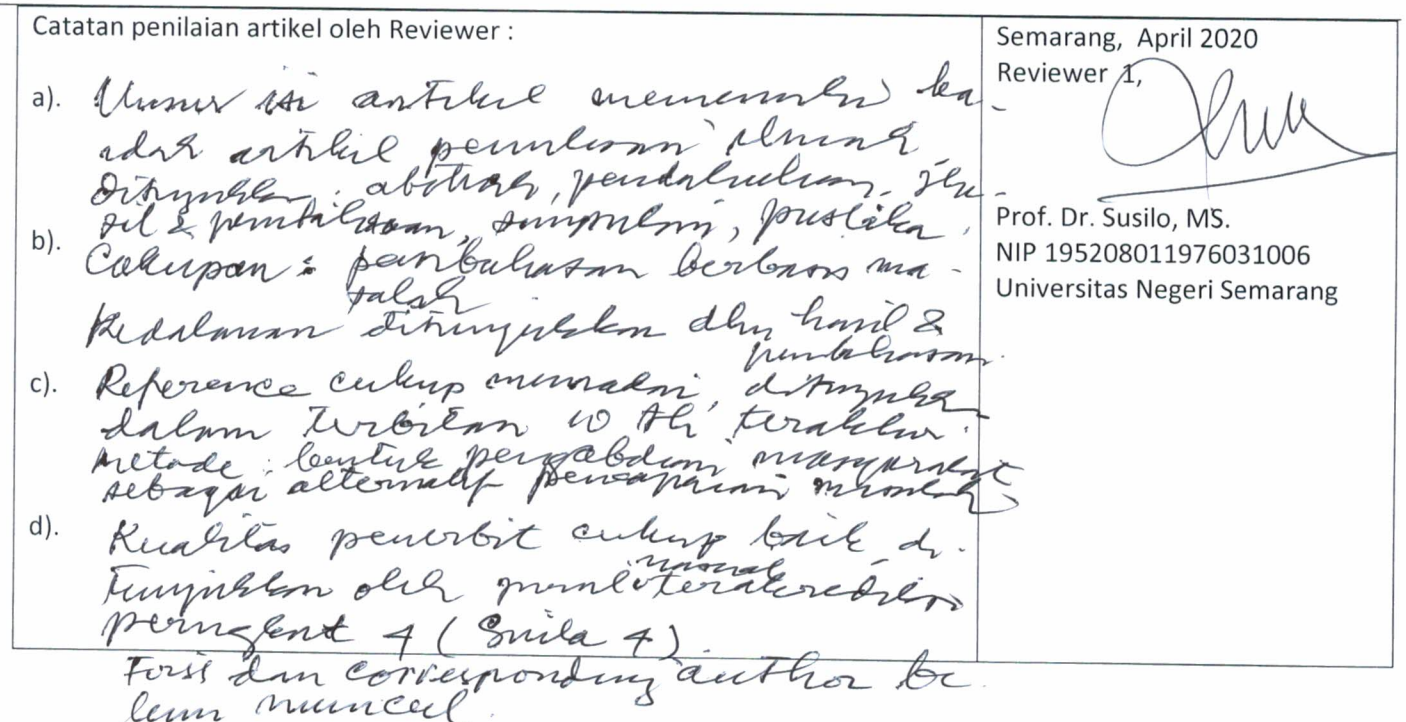 Catatan penilaian artikel oleh Reviewer :
a). Unsur isi artikel memenuhi ka-
idah artikel penulisan ilmiah
ditunjukkan : abstrak, pendahuluan,
sil & pembahasan, simpulan, pustaka.
b). Cakupan : pembahasan berbasis ma-
salah
Kedalaman ditunjukkan dlm hasil &
pembahasan.
c). Reference cukup memadai, ditunjukkan
dalam terbitan 10 th terakhir.
Metode : bentuk pengabdian masyarakat
sebagai alternatif pencapaian
d). Kualitas penerbit cukup baik di-
tunjukkan oleh terakreditasi
peringkat 4 (Sinta 4)
dan corresponding author be
lum muncul.
Semarang, April 2020
Reviewer 1,
Prof. Dr. Susilo, MS.
NIP 195208011976031006
Universitas Negeri Semarang